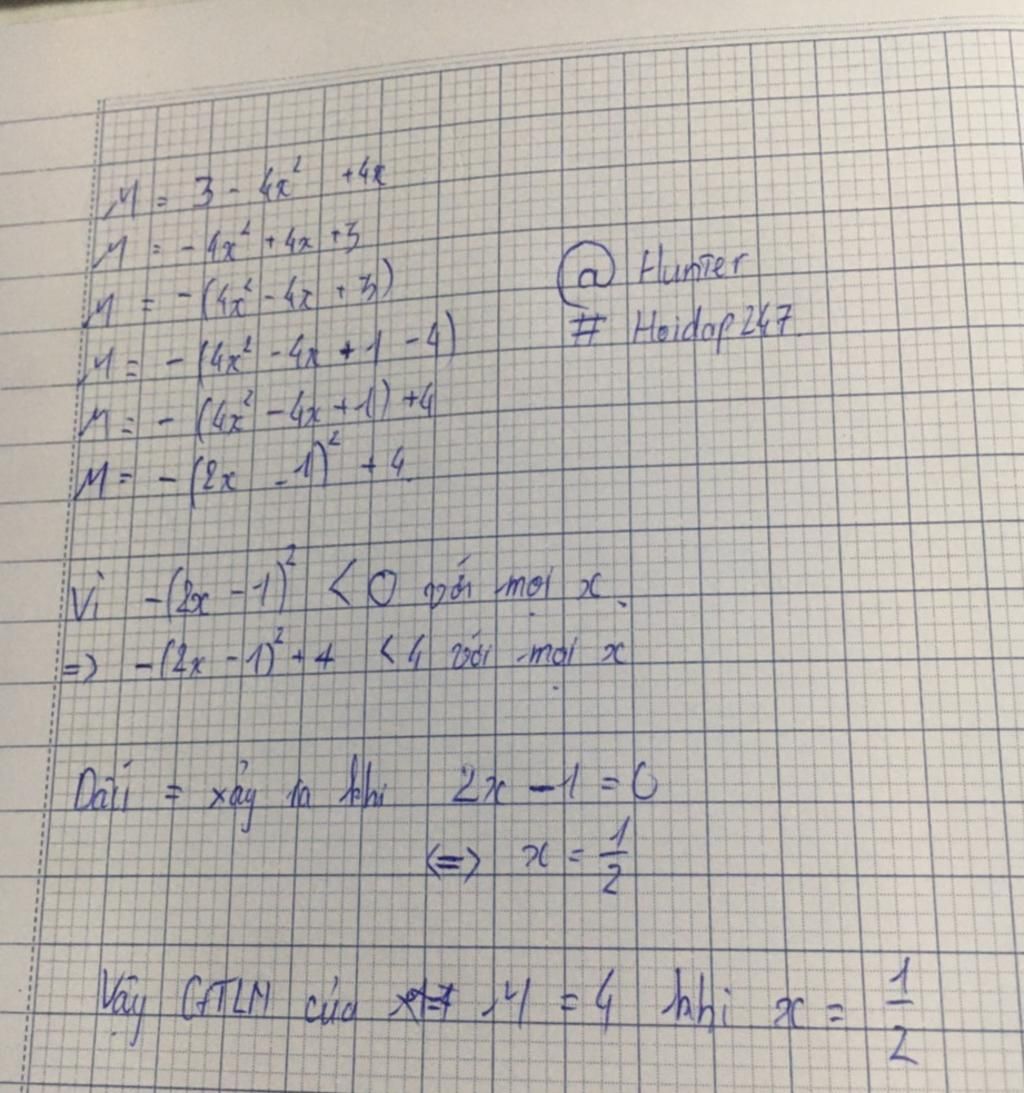 M = 3 - 4x² + 4x
M = - 4x² + 4x + 3
M = - (4x² - 4x + 3)
M = - (4x² - 4x + 1 - 4)
M = - (4x² - 4x + 1) + 4
M = - (2x - 1)² + 4
@ Hunter
# Hoidap247
Vì -(2x - 1)² < 0 với mọi x.
=> -(2x - 1)² + 4 < 4 với mọi x
Dấu = xảy ra khi 2x - 1 = 0
<=> x = 1/2
Vậy GTLN của M = 4 khi x = 1/2